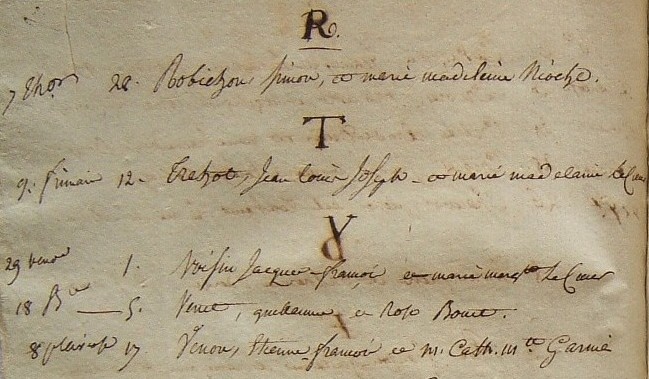 R.
7 Thor 28. Robichon, simon, et marie madeleine
T
9. frimaire 12. Trehot, Jean Louis Joseph et marie madelaine Le Coeur
V
29 vende 1. Voisin Jacques françois et marie margte Le Coeur
18 Bre 5. Venet, guillaume et Rose Bouet.
8 pluviose 17. Venon, Etienne françois et m. Cath. Garnié